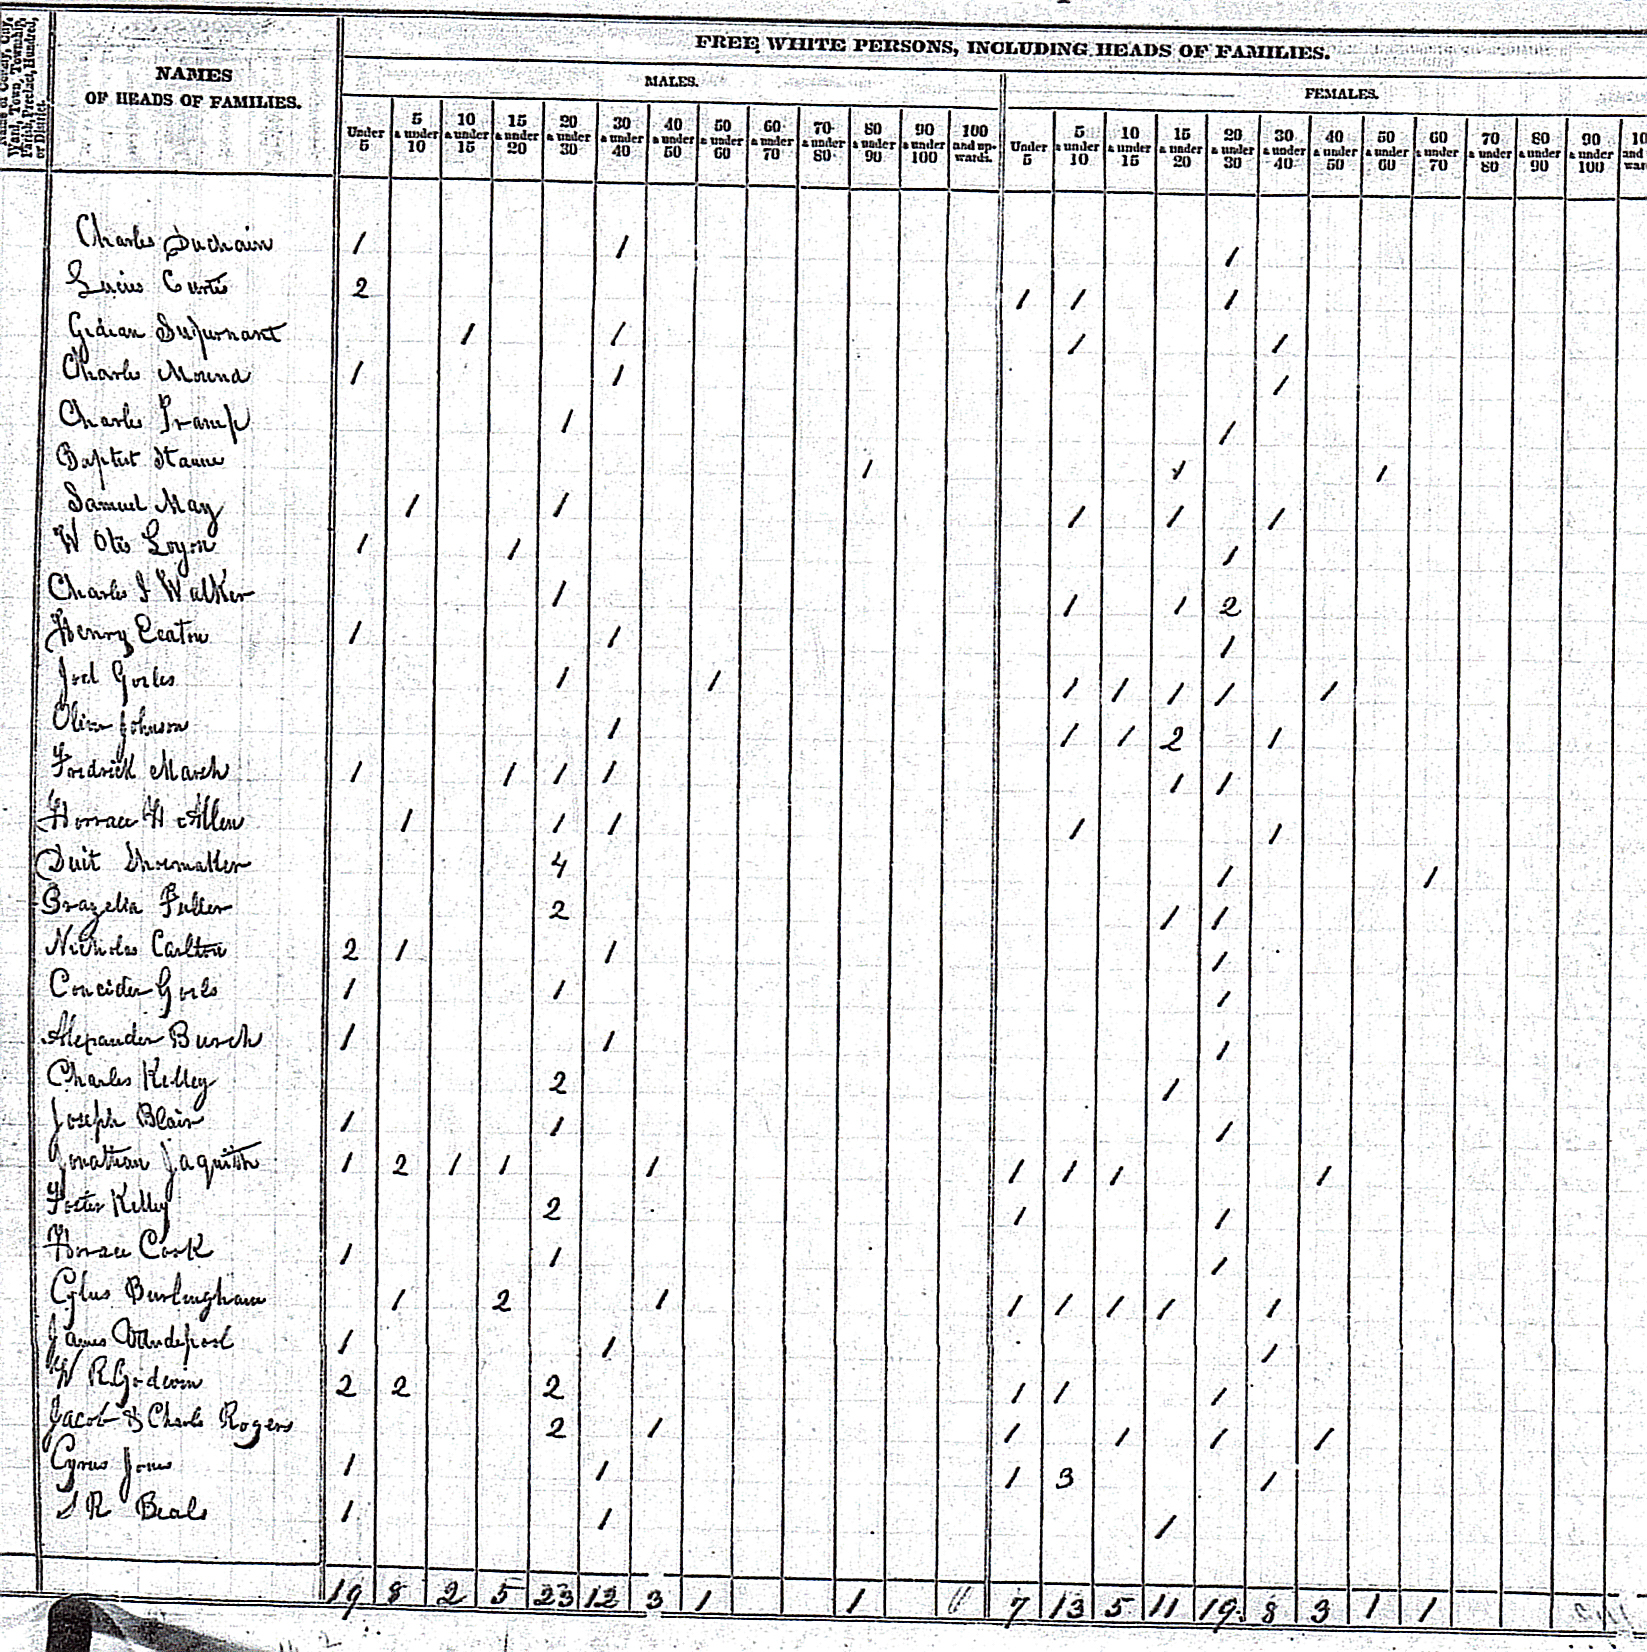 FREE WHITE PERSONS, INCLUDING HEADS OF FAMILIES.
NAMES OF HEADS OF FAMILIES.
MALES. FEMALES.
Under 5 5 & under 10 10 & under 15 15 & under 20 20 & under 30 30 & under 40 40 & under 50 50 & under 60 60 & under 70 70 & under 80 80 & under 90 90 & under 100 100 and upwards. Under 5 5 & under 10 10 & under 15 15 & under 20 20 & under 30 30 & under 40 40 & under 50 50 & under 60 60 & under 70 70 & under 80 80 & under 90 90 & under 100
Charles Duchain 1 1 1
Lucius Curtis 2 1 1 1
Gidian 1 1 1 1
Charles Mound 1 1 1
Charles Tramp 1 1
Baptist 1 1 1
Samuel May 1 1 1 1 1
W Otis Loyon 1 1 1
Charles I Walker 1 1 1 2
Henry Eeaton 1 1 1
Joel Goiles 1 1 1 1 1 1 1
Oliver Johnson 1 1 1 2 1
Fredrick March 1 1 1 1 1 1
Horrace H Allen 1 1 1 1 1
Duit Shoemaker 4 1 1
Brazelia Fuller 2 1 1
Nicholas Carlton 2 1 1 1
Concider Goils 1 1 1
Alexander Burch 1 1 1
Charles Kelley 2 1
Joseph Blair 1 1 1
Jonathan Jaquith 1 2 1 1 1 1 1 1 1
Foster Kelley 2 1 1
Horace Cook 1 1 1
Cylus Burlingham 1 2 1 1 1 1 1 1
James Vandepool 1 1 1
W R Godwin 2 2 2 1 1 1
Jacob & Charls Rogers 2 1 1 1 1 1
Cyrus Jones 1 1 1 3 1
S R Beals 1 1 1
19 8 2 5 23 12 3 1 1 7 13 5 11 19 8 3 1 1